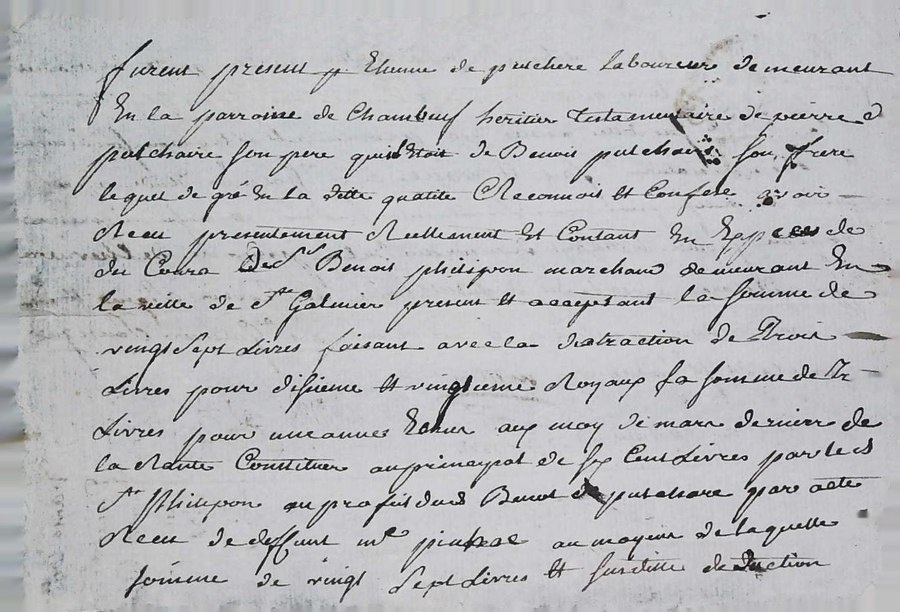 furent present p. Etienne de pulchere laboureur demeurant
En la parroisse de Chambeuf heritier testamentaire de pierre d
pulchaire son pere qui Etoit de Benois pulchaire son frere
lequel de gré En la ditte qualité Reconnois Et Confesse avoir
Receu presentement Reellement Et Contant En Expeces de
du Cours de Sr Benois philipon marchand demeurant En
la ville de St Galmier present Et acceptant la somme de
vingt Sept Livres faisant avec la distraction de Trois
Livres pour disieme Et vingtieme Royaux la somme de Tr
Livres pour une annee Echue au moy de mars dernier de
la Rante Constituee au principal de six Cent Livres par le d
Sr philipon au profit dud Benoit de pulchare par acte
Receu de deffunt me au moyen de laquelle
somme de vingt Sept Livres Et susditte deduction